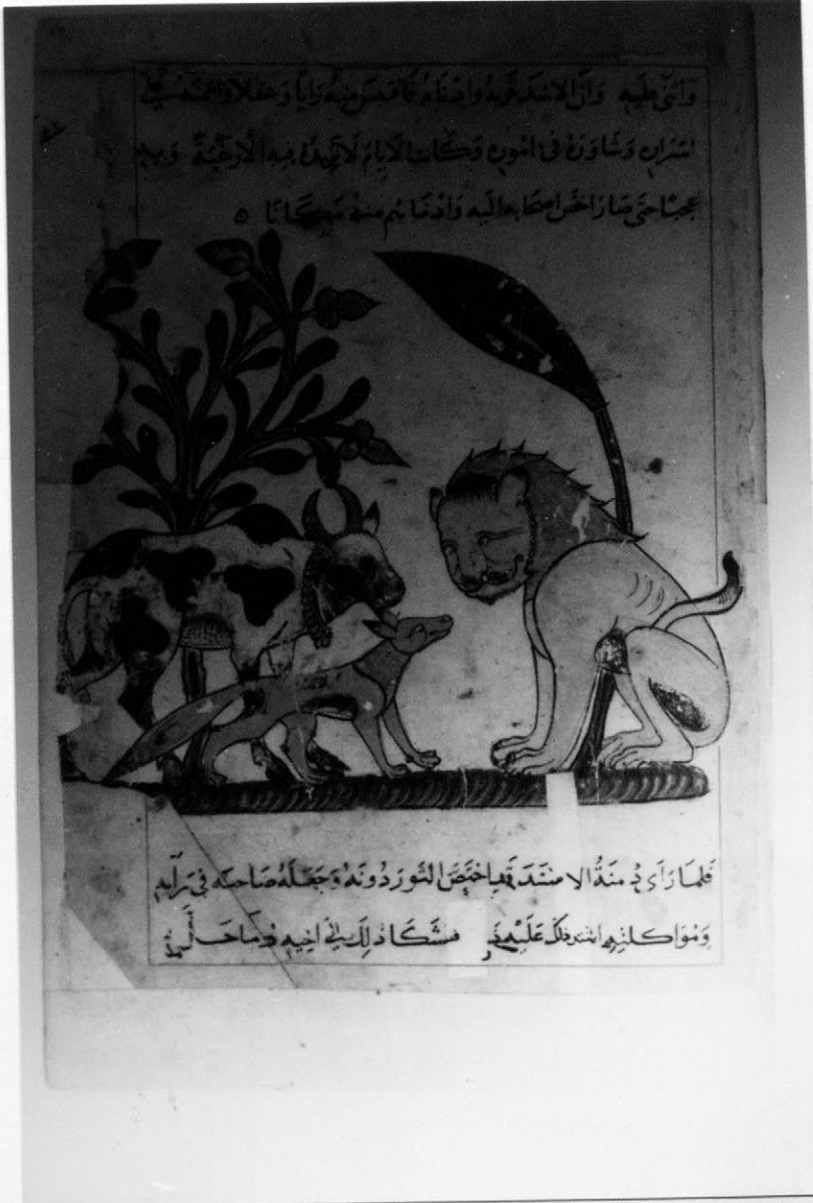 وَاثنى عليه وَانّ الاسَد قرّبهُ وادناهُ فاقتبسَ منه رَايًا وَعقلًا وَاءتمنه على
اسرَارِه وَشاورَهُ في امُورِه وَكانت الايامُ لَا تزِيدُهُ فيه الّا رَغبَةً وَبهِ
عجبًا حَتى صَارَ اخصّ اصحَابه اليه وَادناهُم منهُ مَكَانًا
فلمَا رَاَى دِمنَةُ الاسَدَ قد اختصّ الثورَ دُونَهُ وَجَعَلهُ صَاحبَه فى رَأيهِ
وَمُوَاكلتِهِ اشتد ذلك عَلَيْهِ فشَكَا ذلِكَ الى اخيهِ وَمَا